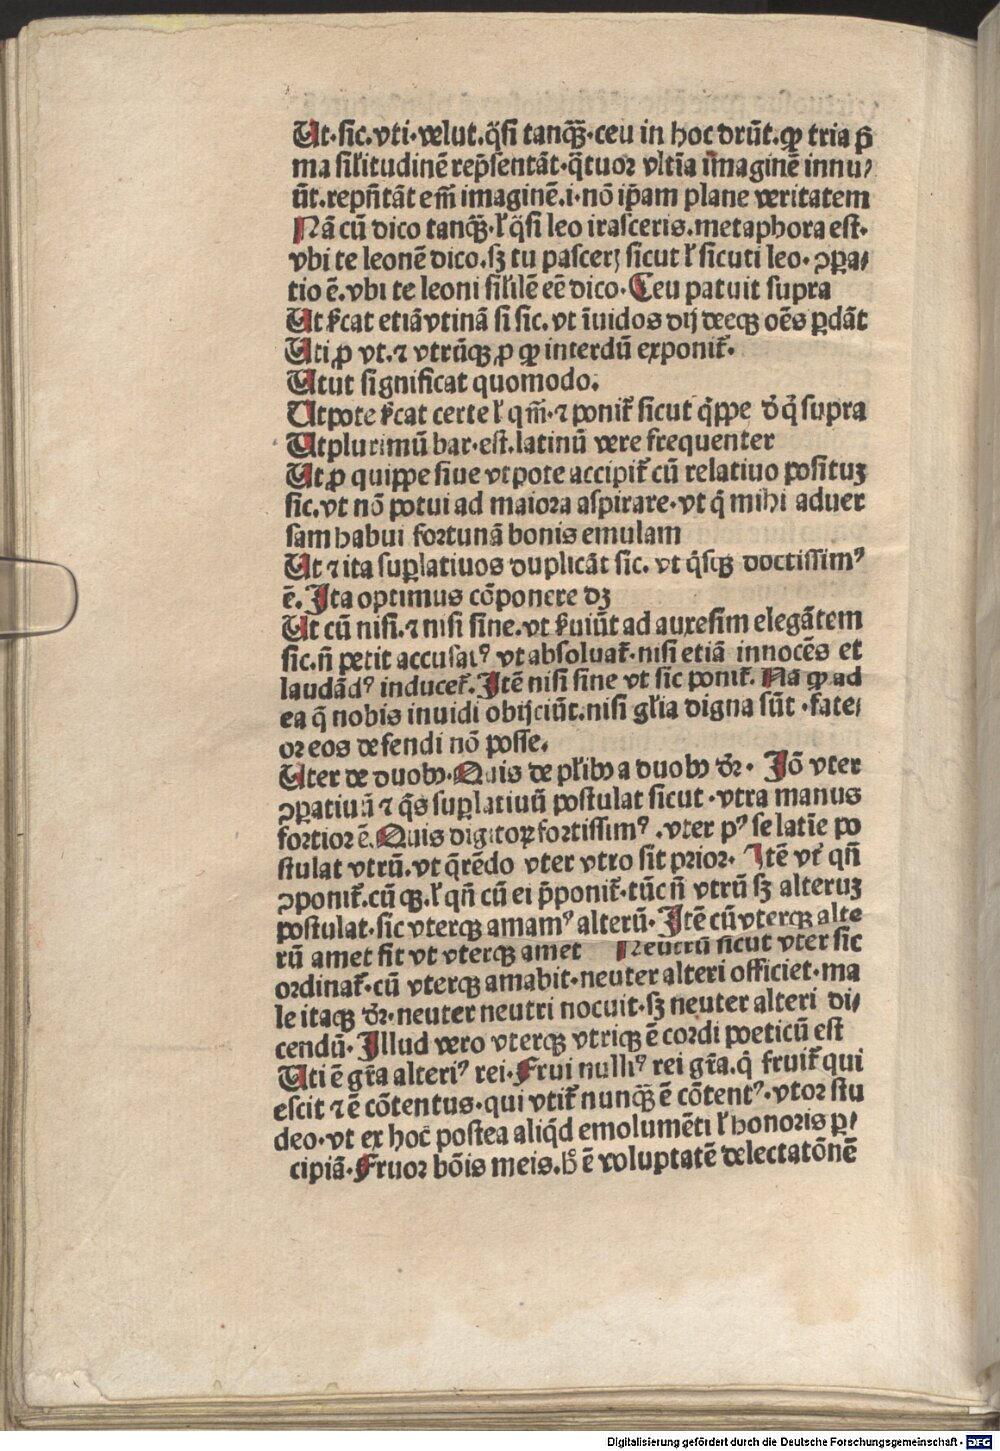 Ut·sic.vti·velut.q̄si tanqꝫ̄·ceu in hoc dr̄ūt.qꝙ tria p̄
ma silitudinē rep̄sentāt·q̄tuor vltīa īmaginē innu⸗
ūt.repn̄tāt em̄ imaginē.i·nō ip̄am plane veritatem
Nā cū dico tanqꝫ̄·ł q̄si leo irasceris.metaphora est·
vbi te leonē dico.sꝫ tu pascerꝭ sicut ł sicuti leo· ꝯꝑa⸗
tio ē.vbi te leoni sililē eē dico·Ceu patuit supra
Ut ẜcat etiā vtinā si sic.vt īuidos dij deeqꝫ oēs ꝑdāt
Uti ꝓ vt.⁊ vtrūqꝫ ꝓ ꝙ interdū exponit᷑.
Utut significat quomodo.
Utpote ẜcat certe ł qm̄·⁊ ponit᷑ sicut q̄ppe d̓ q̄ supra
Utplurimū bar·est.latinū vere frequenter
Ut ꝓ quippe siue vt pote accipit᷑ cū relatiuo posituꝫ
sic.vt nō potui ad maiora aspirare·vt q̄ mihi aduer
sam habui fortunā bonis emulam
Ut ⁊ ita suꝑlatiuos duplicāt sic. vt q̄sqꝫ doctissimꝰ
ē.Ita optimus cōponere dꝫ
Ut cū nisi.⁊ nisi sine.vt ẜuiūt ad auxesim elegātem
sic.n̄ petit accusatꝰ vt absoluat᷑·nisi etiā innocēs et
laudādꝰ inducet᷑.Itē nisi sine vt sic ponit᷑. Nā ꝙ ad
ea q̄ nobis inuidi obijciūt.nisi gl̄ia digna sūt ·fate⸗
or eos defendi nō posse.
Uter de duobꝫ·Quis de pl̄ibꝫ a duobꝫ dr̄· Iō vter
ꝯꝑatiuū ⁊ q̄s suꝑlatiuū postulat sicut·vtra manus
fortior ē.Quis digitoꝝ fortissimꝰ .vter pꝰ se latīe po
stulat vtrū.vt q̄rēdo vter vtro sit prior· Itē vt᷑ qn̄
ꝯponit᷑.cū qꝫ.ł qn̄ cū ei p̄ponit᷑·tūc n̄ vtrū sꝫ alteruꝫ
postulat·sic vterqꝫ amamꝰ alterū·Itē cū vterqꝫ alte
rū amet fit vt vterqꝫ amet Neutrū sicut vter sic
ordinat᷑·cū vterqꝫ amabit·neuter alteri officiet·ma
le itaqꝫ dr̄·neuter neutri nocuit·sꝫ neuter alteri di⸗
cendū·Illud vero vterqꝫ vtriqꝫ ē cordi poeticū est
Uti ē gr̄a alteriꝰ rei·Frui nulliꝰ rei gr̄a.q̄ fruit᷑ qui
escit ⁊ ē cōtentus·qui vtit᷑ nunqꝫ̄ ē cōtentꝰ·vtor stu
deo·vt ex hoc postea aliq̄d emolumēti ł honoris ꝑ⸗
cipiā·Fruor bōis meis.hͦ ē voluptatē delectatōnē
Digitalisierung gefördert durch die Deutsche Forschungsgemeinschaft · DFG